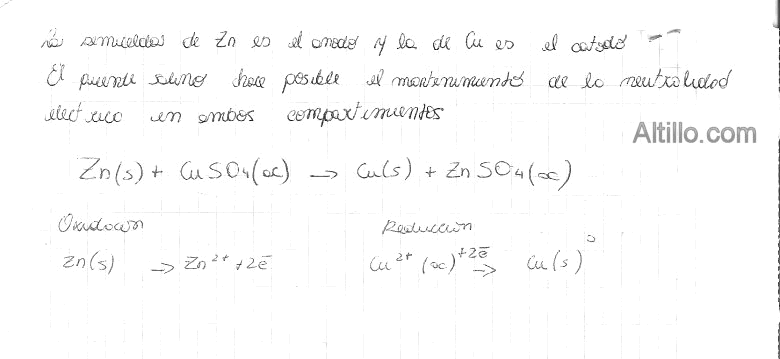 La semicelda de Zn es el anodo y la de Cu es el catodo --
El puente salino hace posible el mantenimiento de la neutralidad
electrica en ambos compartimientos
Altillo.com
Zn(s) + CuSO4(ac) → Cu(s) + ZnSO4(ac)
Oxidacion Reduccion
Zn(s) → Zn²⁺ + 2ē Cu²⁺ (ac) +2ē → Cu(s)⁰